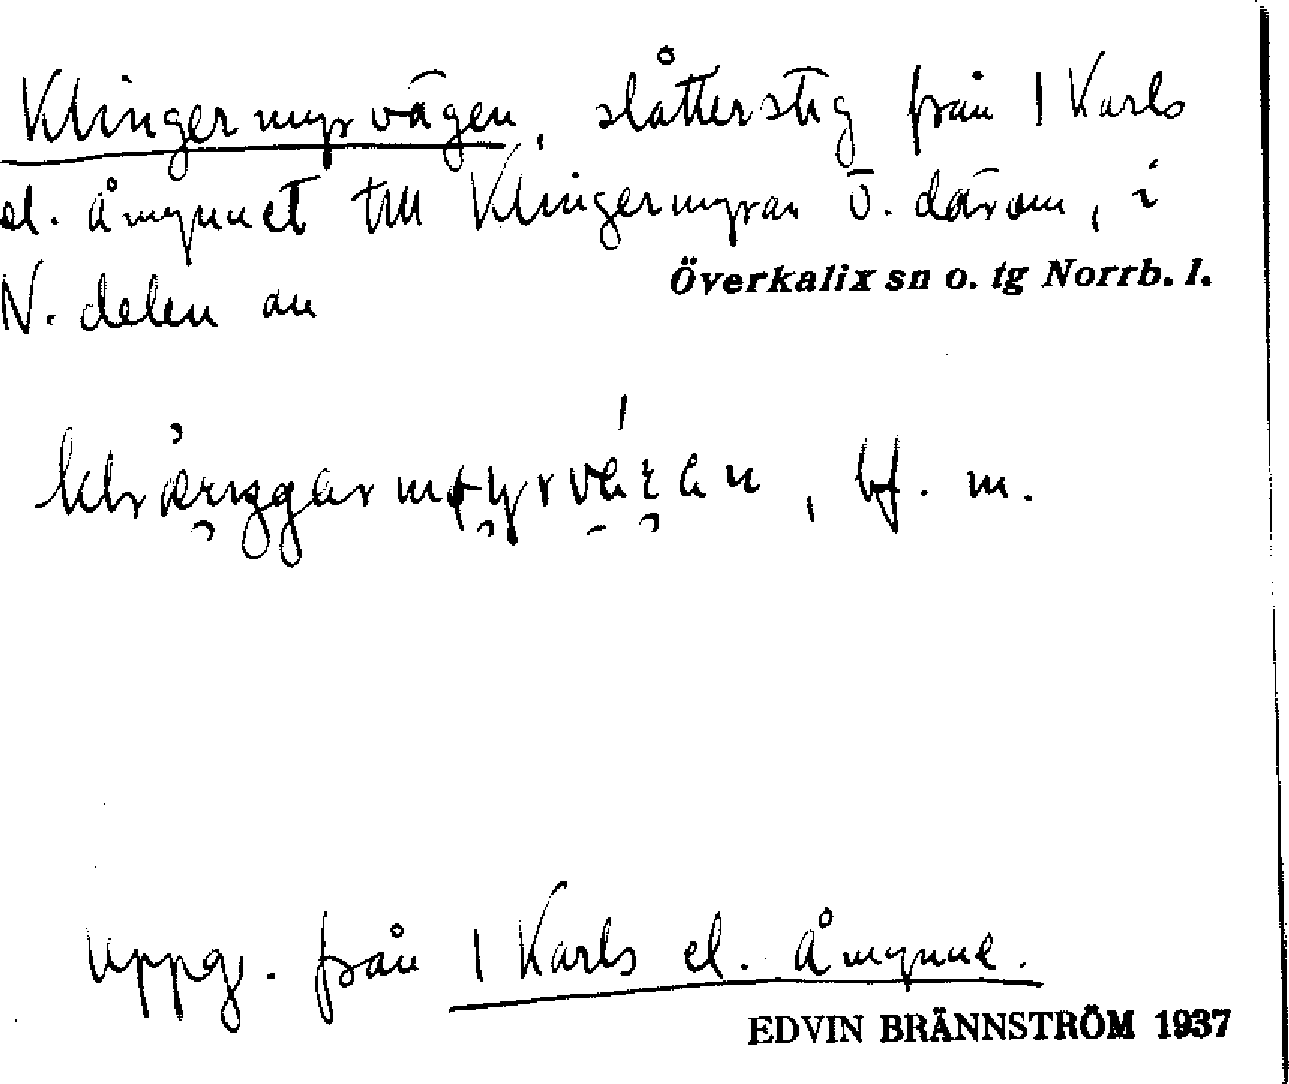 Klingermyrvägen, slåtterstig från 1 Karls
el. Åmynnet till Klingermyran Ö. därom, i
N. delen av
Överkalix sn o. tg Norrb. l.
, bf. m.
Uppg. från 1 Karls el. Åmynne.
EDVIN BRÄNNSTRÖM 1937